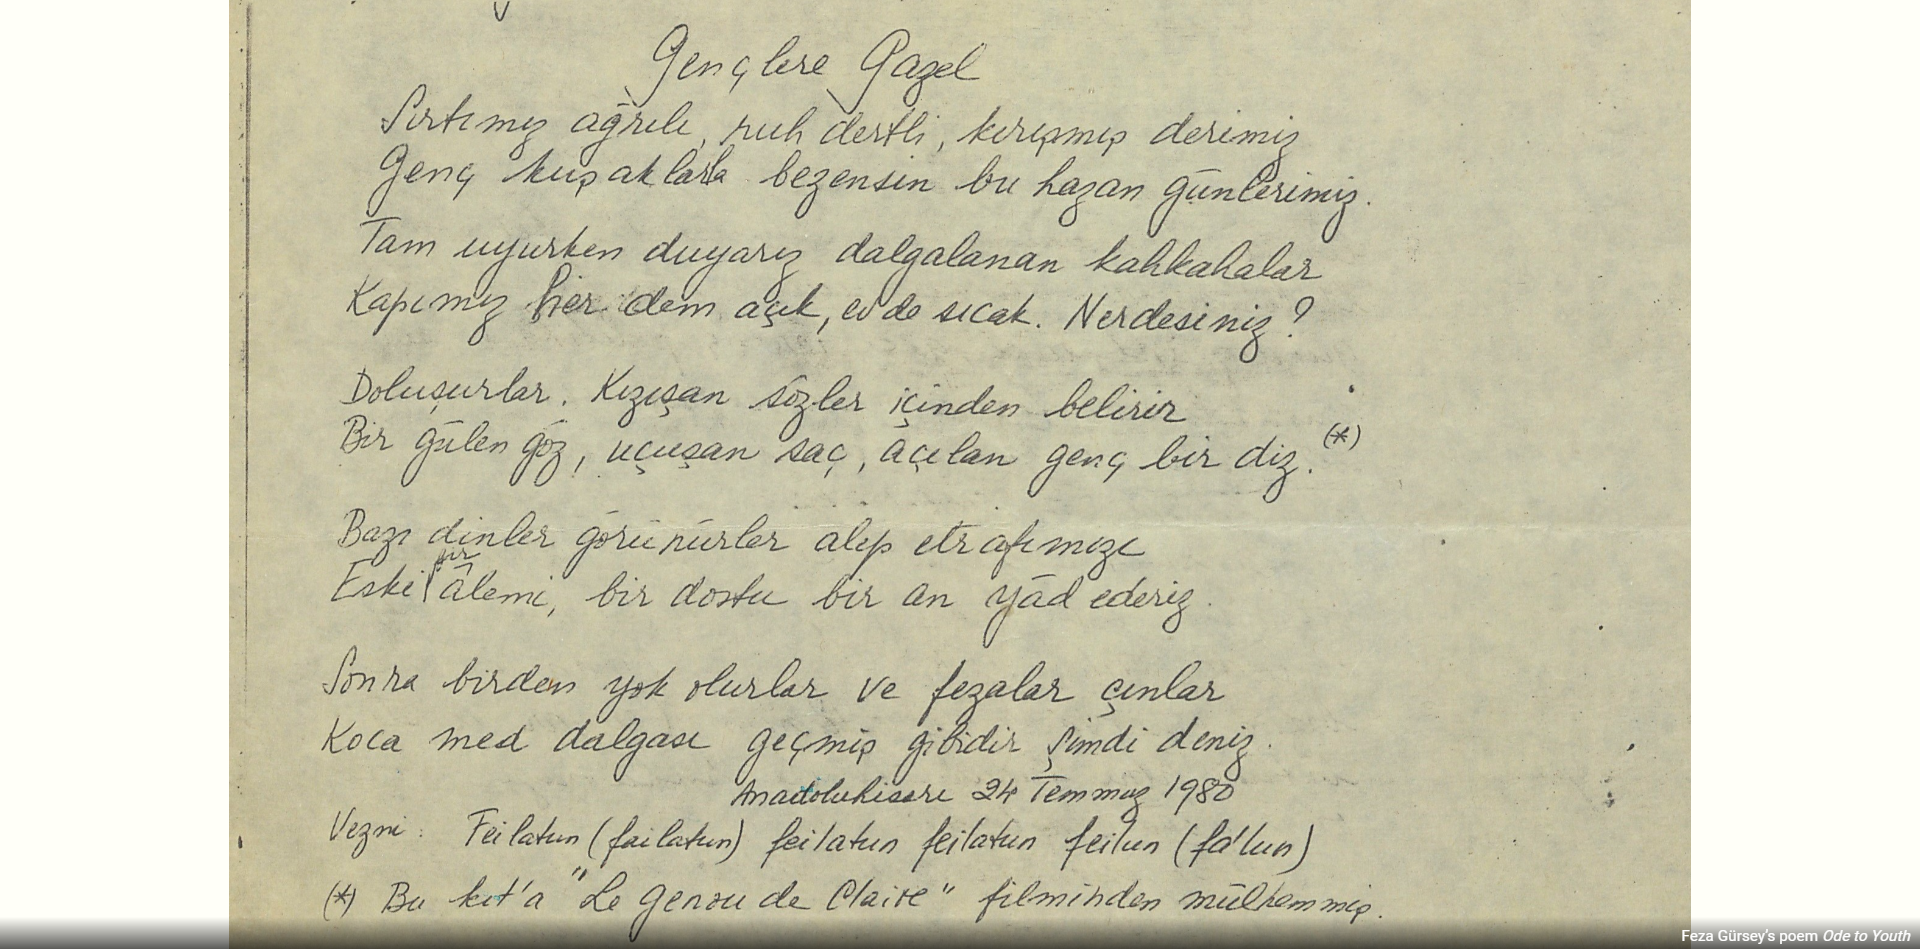 Gençlere Gazel
Sırtımız ağrılı, ruh dertli, kırışmış derimiz
Genç kuşaklarla bezensin bu hazan günlerimiz.
Tam uyurken duyarız dalgalanan kahkahalar
Kapımız her dem açık, ev de sıcak. Nerdesiniz?
Doluşurlar. Kızışan sözler içinden belirir
Bir gülen göz, uçuşan saç, açılan genç bir diz. (*)
Bazı dinler görünürler alıp etrafımızı
Eski bir âlemi, bir dostu bir an yâd ederiz.
Sonra birden yok olurlar ve fezalar çınlar
Koca med dalgası geçmiş gibidir şimdi deniz.
Anadoluhisarı 24 Temmuz 1980
Vezni: Feilatun (failatun) feilatun feilatun feilun (fa'lun)
(*) Bu kıt'a "Le genou de Claire" filminden mülhemmiş.
Feza Gürsey's poem Ode to Youth